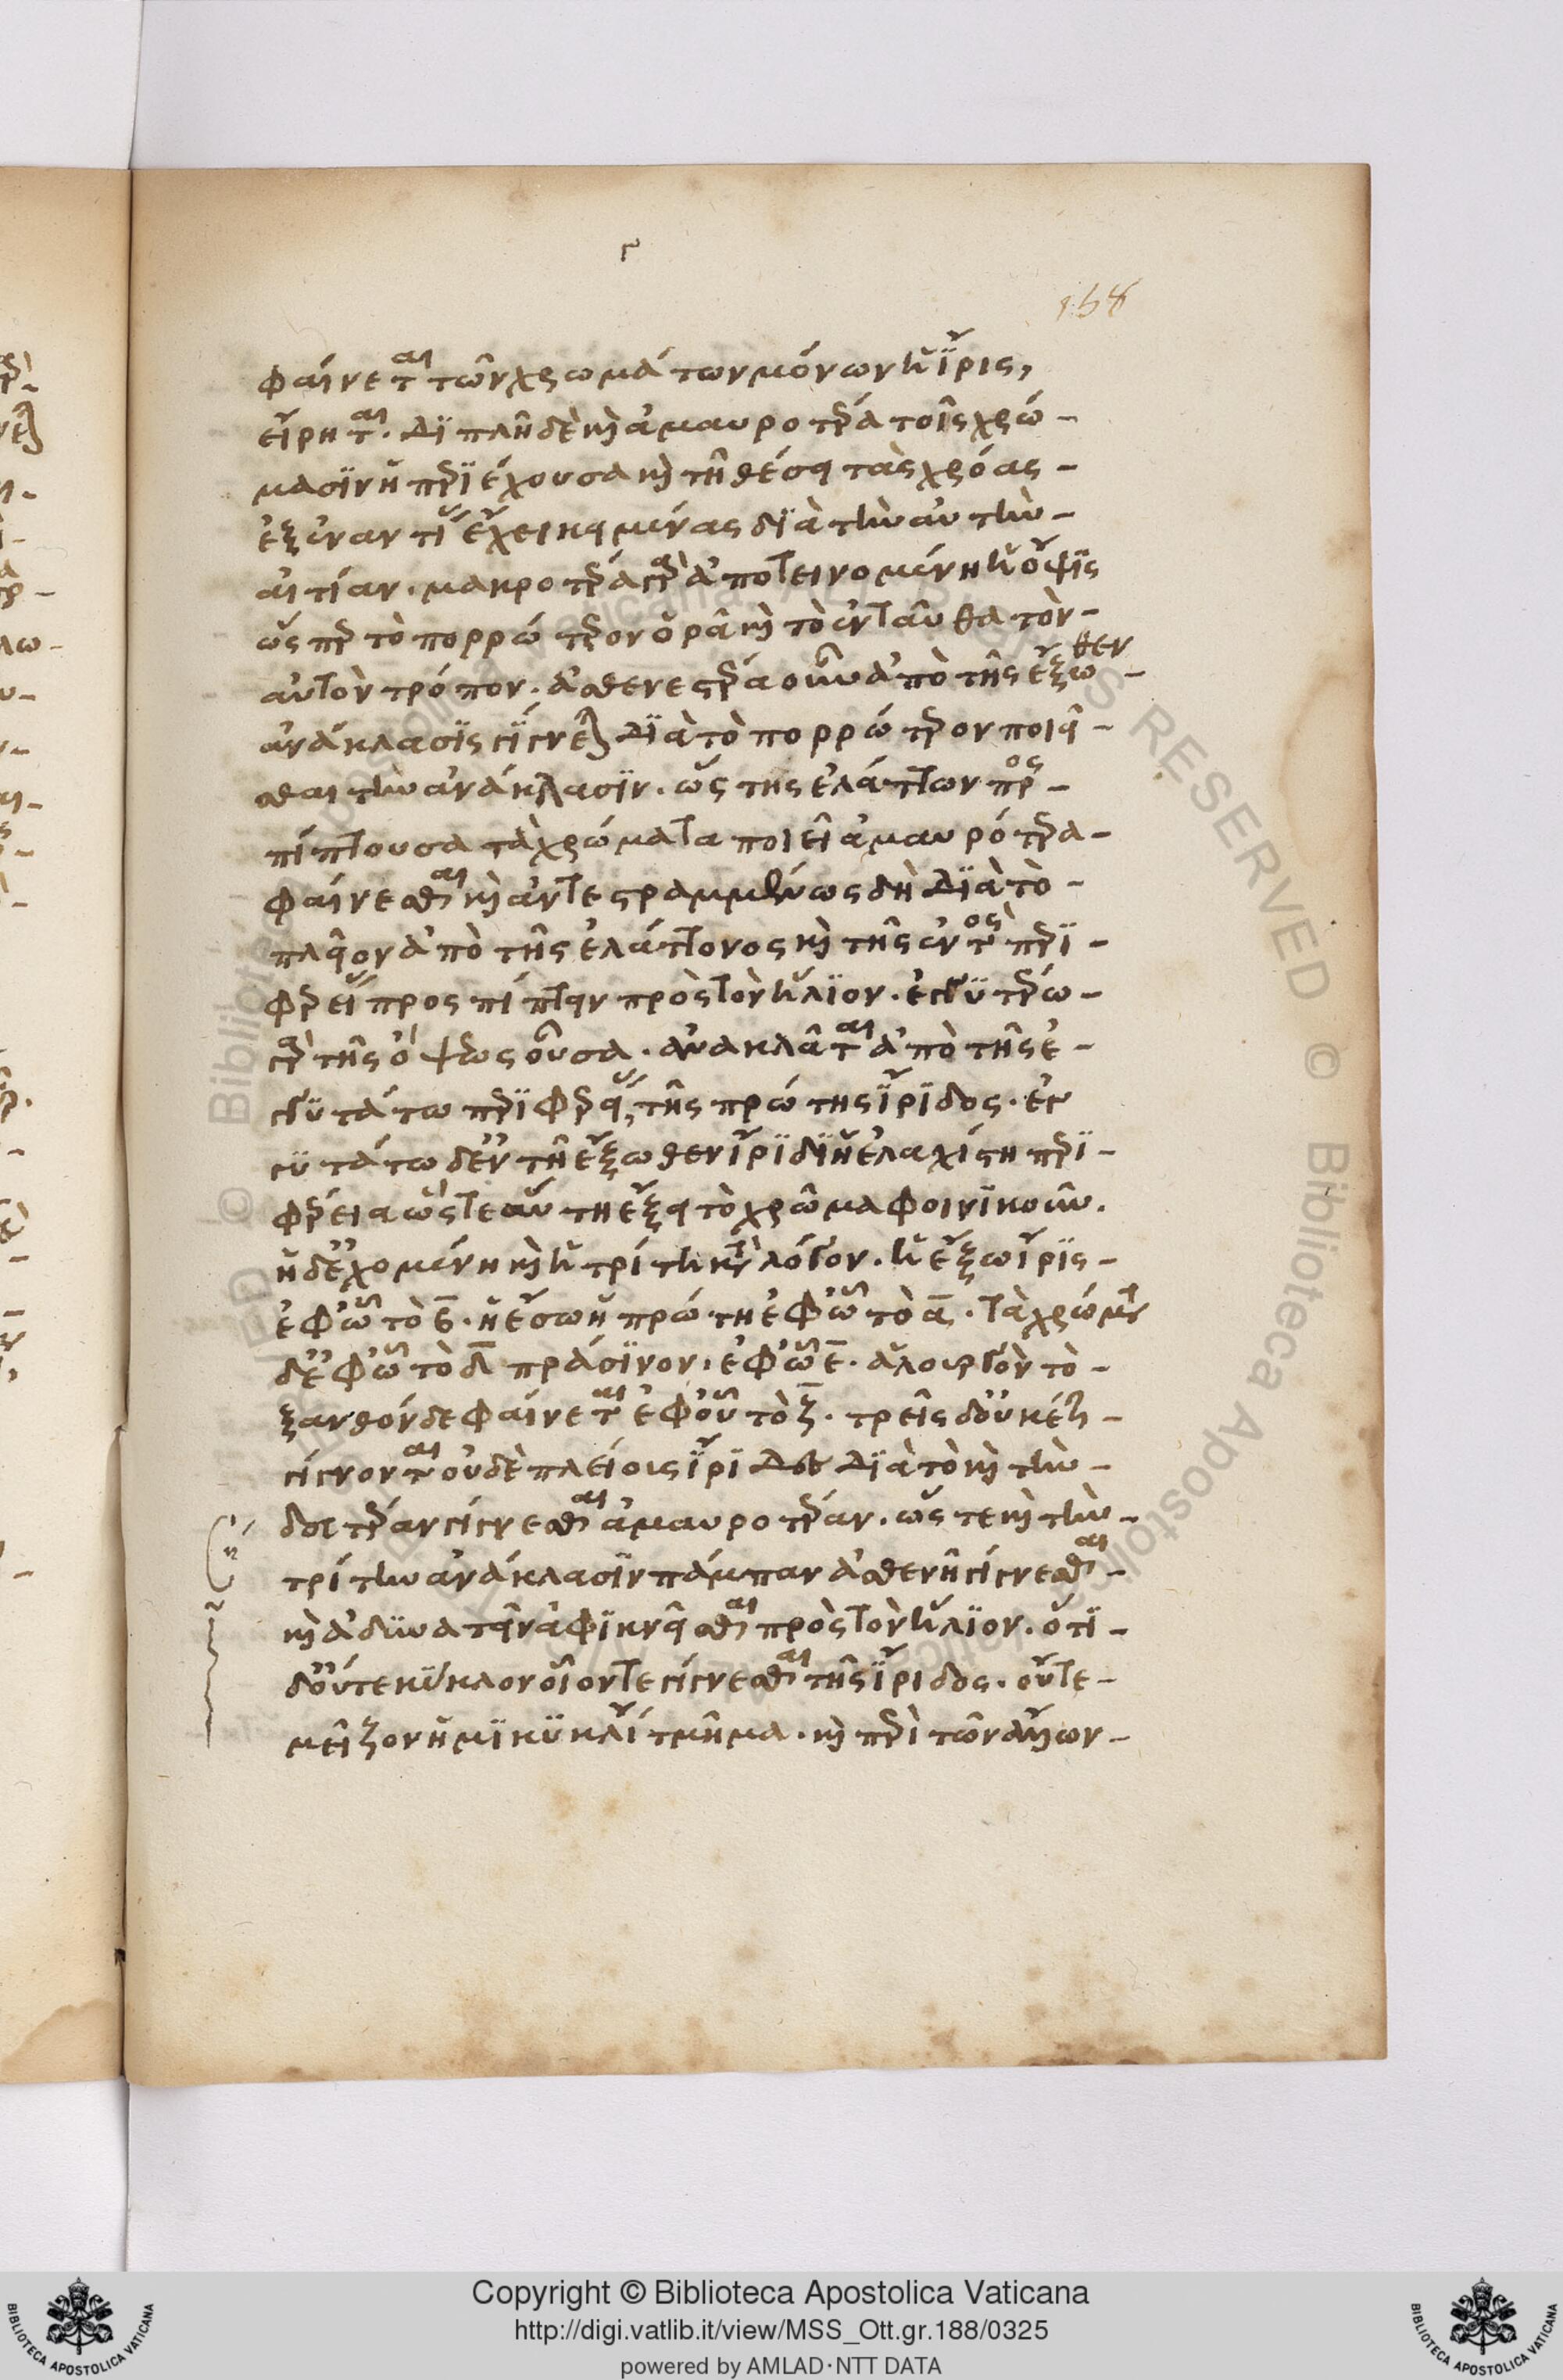 γ
158
φαίνεται τῶν χρωμάτων μόνων ἡ ἶρις,
εἴρηται. διπλῆ δὲ καὶ ἀμαυροτέρα τοῖς χρώ-
μασϊν ἡ περϊέχουσα καὶ τῆ θέσει τὰς χρόας-
ἐξεναντίας ἔχει κειμένας δϊὰ τὴν αὐτὴν-
αἰτίαν. μακροτέρα γὰρ ἀποτεινομένη ἡ ὄψϊς
ὥσπερ τὸ πορρώτερον ὁρᾶ καὶ τὸ ἐνταῦθα τὸν-
αὐτὸν τρόπον. ἀσθενεστέρα οὖν ἀπὸ τῆς ἔξωθεν-
ἀνάκλασϊς γίγνεται δϊὰ τὸ πορρώτερον ποιεῖ-
σθαι τὴν ἀνάκλασϊν. ὥστης ἐλάττων προσ-
πίπτουσα τὰ χρώματα ποιεῖ ἀμαυρότερα-
φαίνεσθαι καὶ ἀντεστραμμένως δὴ δϊὰ τὸ-
πλεῖον ἀπὸ τῆς ἐλάττονος καὶ τῆς ἐντὸς περϊ-
φερείας προσπίπτειν πρὸς τὸν ἥλϊον. ἐγγϋτέρω-
γὰρ τῆς ὄψεως οὖσα. ἀνακλᾶται ἀπὸ τῆς ἐ-
γγϋτάτω περϊφερείας τῆς πρώτης ἴρϊδος. ἐγ
γϋτάτω δ' ἐν τῆ ἔξωθεν ἴρϊδϊ ἡ ἐλαχίστη περϊ-
φέρεια ὥστε αὕτη ἕξει τὸ χρῶμα φοινϊκοῦν.
ἡ δ' ἐχομένη καὶ ἡ τρίτη κατὰ λόγον. ἡ ἔξω ἶρϊς-
ἐφ' ὧ τὸ β. ἡ ἔσω ἡ πρώτη ἐφ' ὧ τὸ α. τὰ χρώματα
δ' ἐφ' ὧ τὸ δ πράσϊνον. ἐφ' ὧ ε. ἁλουργὸν τὸ-
ξανθὸν δὲ φαίνεται ἐφ' οὗ τὸ ζ. τρεῖς δ' οὐκέτι-
γίγνονται οὐδὲ πλείους ἴρϊδες δϊὰ τὸ καὶ τὴν-
δευτέραν γίγνεσθαι ἀμαυροτέραν. ὥστε καὶ τὴν-
τρίτην ἀνάκλασϊν πάμπαν ἀσθενῆ γίγνεσθαι-
καὶ ἀδϋνατεῖν ἀφϊκνεῖσθαι πρὸς τὸν ἥλϊον. ὅτϊ-
δ' οὔτε κύκλον οἷόν τε γίγνεσθαι τῆς ἴρϊδος. οὔτε-
μεῖζον ἡμϊκϋκλίου τμῆμα. καὶ περὶ τῶν ἄλλων-
Copyright © Biblioteca Apostolica Vaticana
http://digi.vatlib.it/view/MSS_Ott.gr.188/0325
powered by AMLAD·NTT DATA
BIBLIOTECA APOSTOLICA VATICANA
BIBLIOTECA APOSTOLICA VATICANA